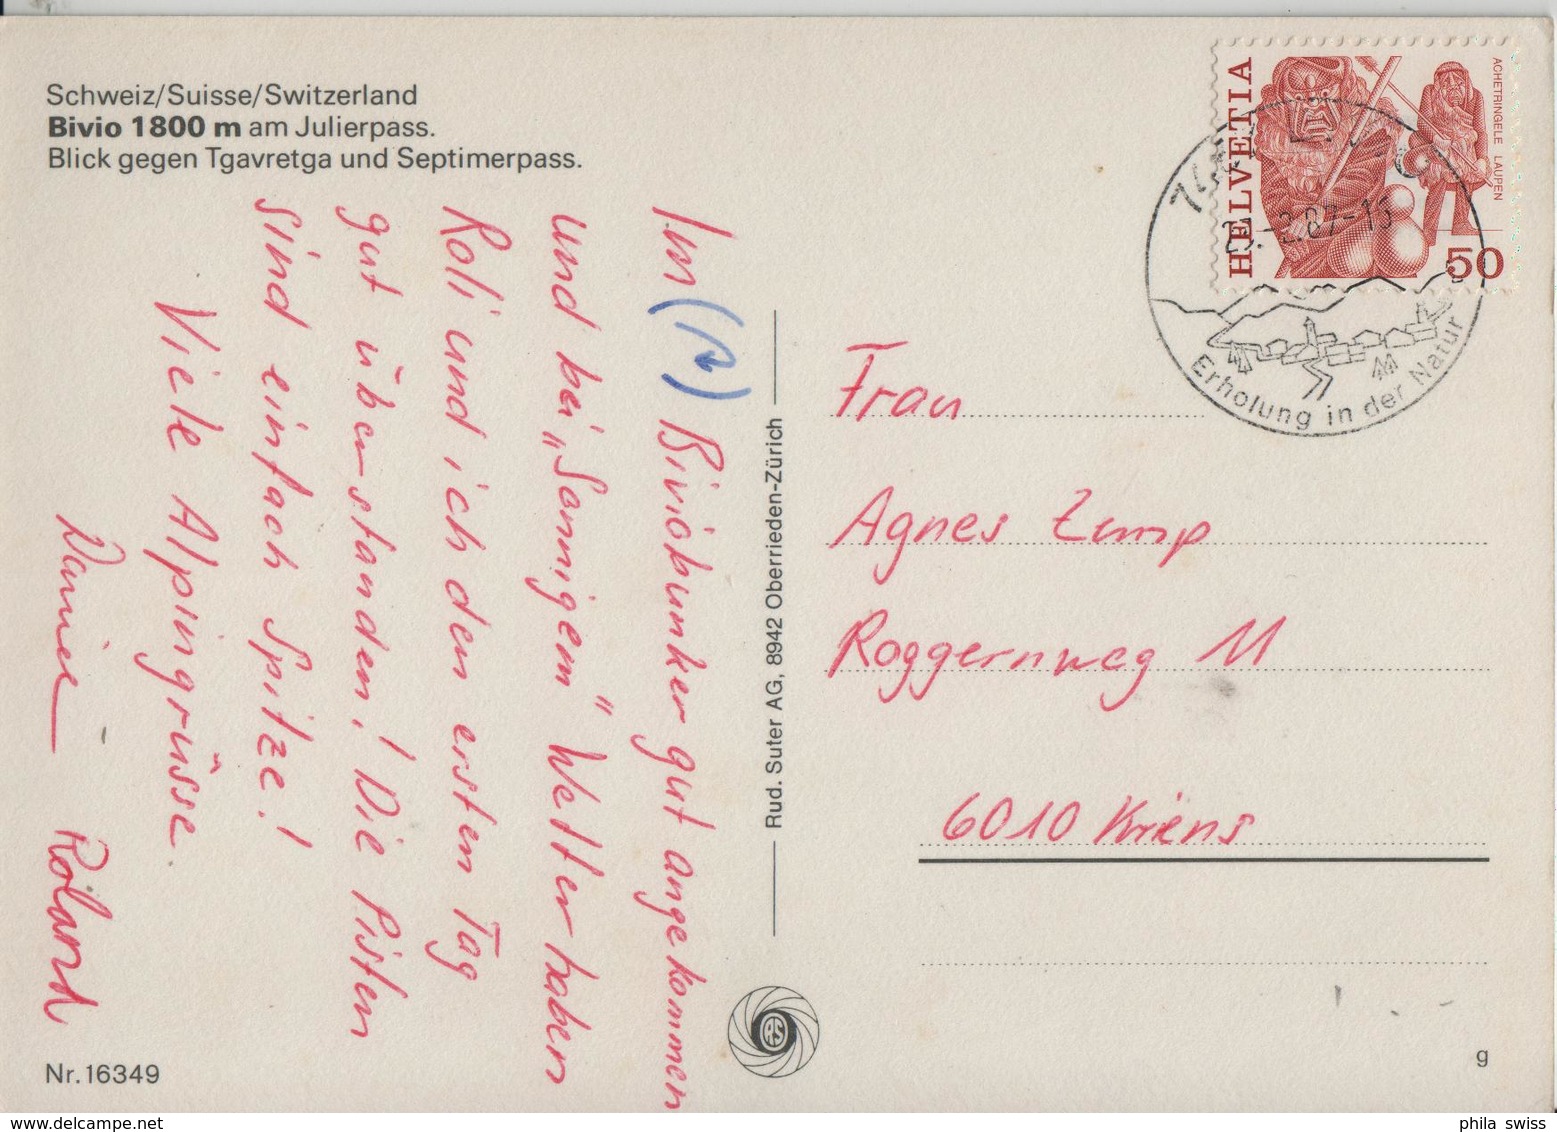 Schweiz/Suisse/Switzerland
Bivio 1800 m am Julierpass.
Blick gegen Tgavretga und Septimerpass.
Im (↷) Biviobunker gut angekommen
und bei „Sonnigem" Wetter haben
Roli und ich den ersten Tag
gut überstanden! Die Pisten
sind einfach Spitze!
Viele Alpingrüsse
Roland
Rud. Suter AG, 8942 Oberrieden-Zürich
RS
HELVETIA
ACHETRINGELE LAUPEN
50
.2.87-1
Erholung in der Natur
Frau
Agnes Zemp
Roggernweg 11
6010 Kriens
Nr.16349
g
phila swiss